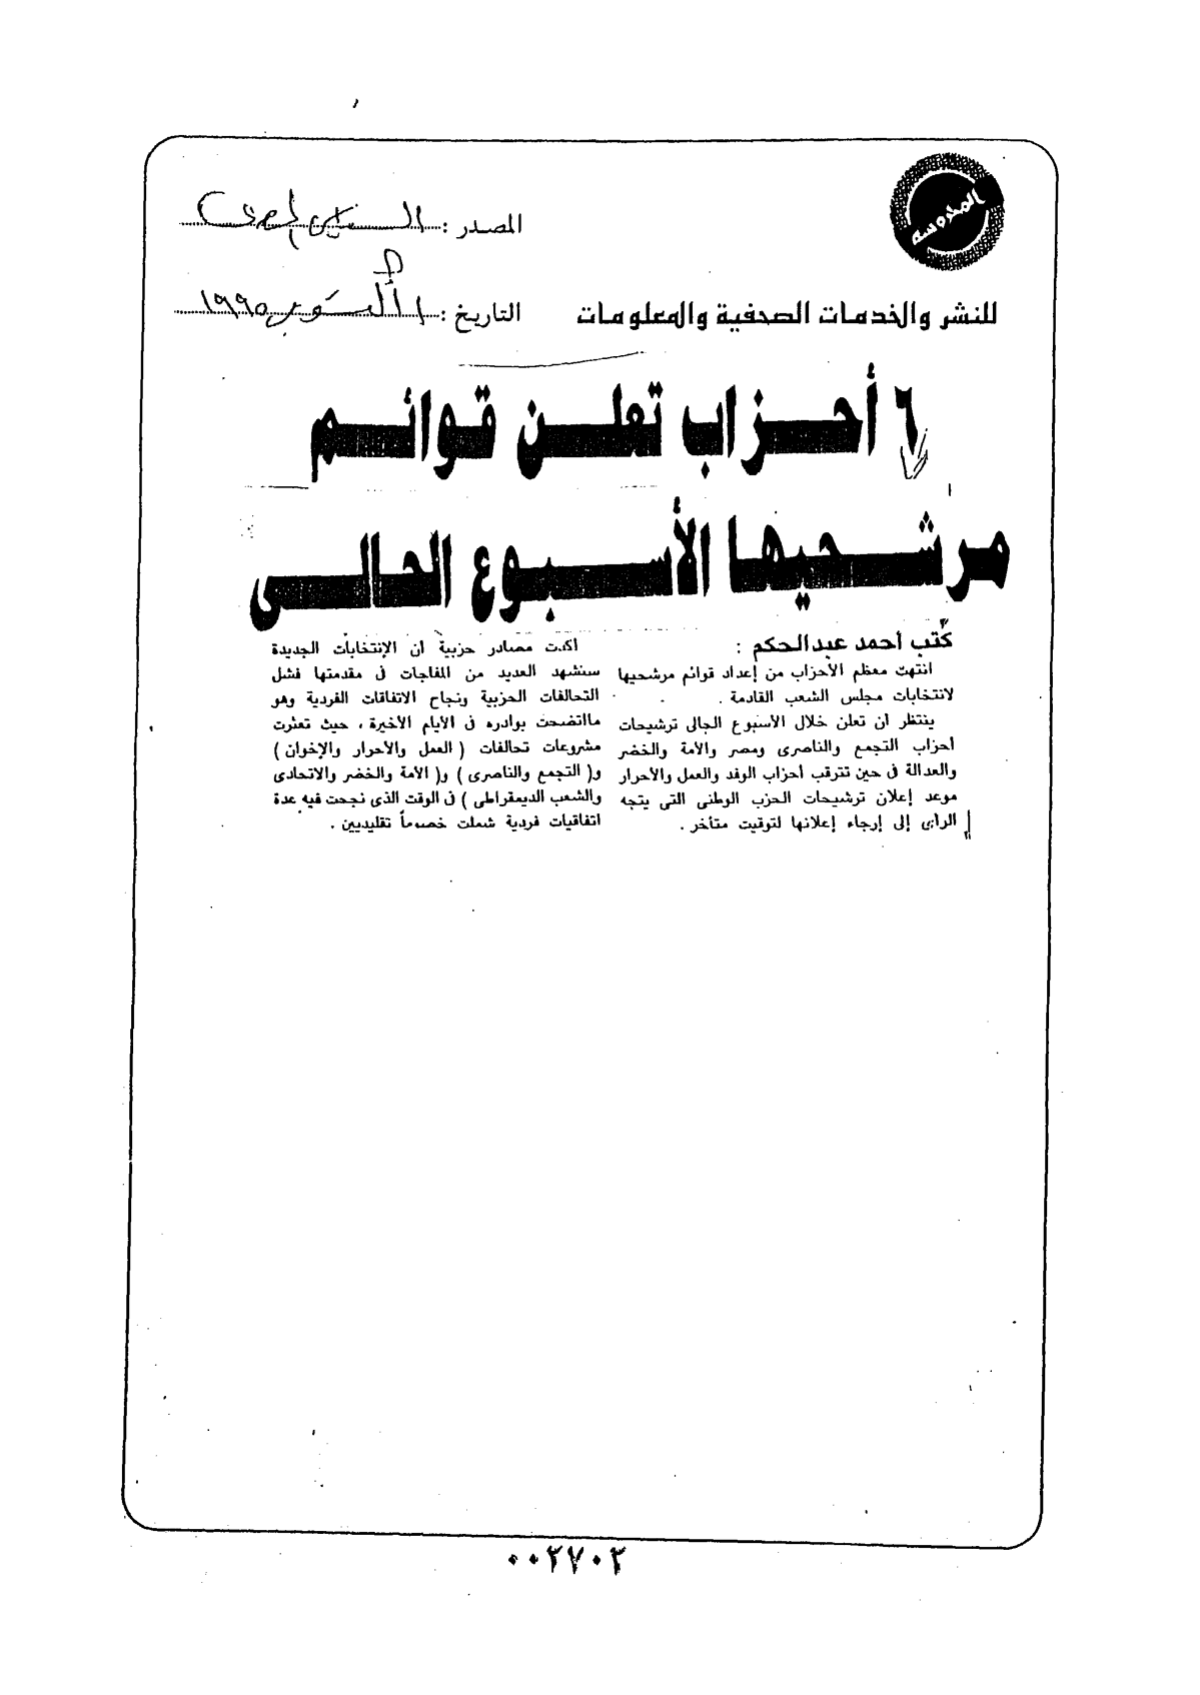 المحروسة
للنشر والخدمات الصحفية والمعلومات
المصدر : السياسى المصرى
التاريخ : ١ أكتوبر ١٩٩٥
٦ أحزاب تعلن قوائم
مرشحيها الأسبوع الحالى
كتب أحمد عبدالحكم :
انتهت معظم الأحزاب من إعداد قوائم مرشحيها
لانتخابات مجلس الشعب القادمة .
ينتظر ان تعلن خلال الأسبوع الجالى ترشيحات
أحزاب التجمع والناصرى ومصر والأمة والخضر
والعدالة فى حين تترقب أحزاب الوفد والعمل والأحرار
موعد إعلان ترشيحات الحزب الوطنى التى يتجه
الرأى إلى إرجاء إعلانها لتوقيت متأخر .
أكدت مصادر حزبية ان الإنتخابات الجديدة
ستشهد العديد من المفاجات فى مقدمتها فشل
التحالفات الحزبية ونجاح الاتفاقات الفردية وهو
مااتضحت بوادره فى الأيام الأخيرة ، حيث تعثرت
مشروعات تحالفات ( العمل والأحرار والإخوان )
و( التجمع والناصرى ) و( الأمة والخضر والاتحادى
والشعب الديمقراطى ) فى الوقت الذى نجحت فيه عدة
اتفاقيات فردية شملت خصوماً تقليديين .
٠٠٢٧٠٢